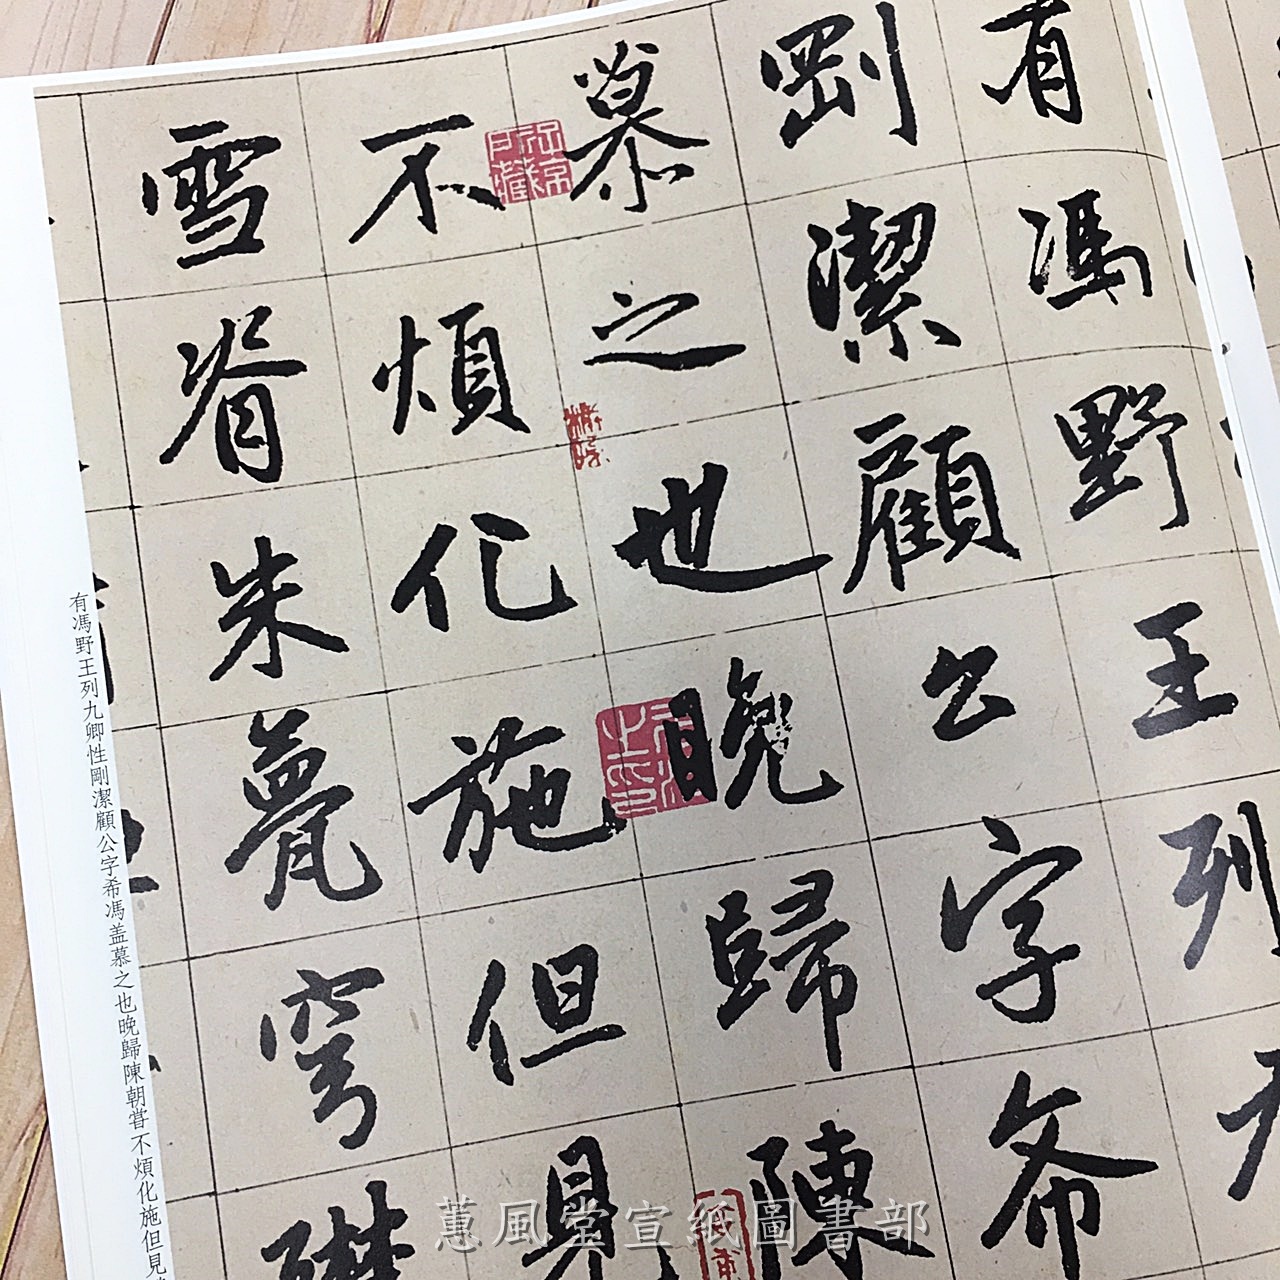 有馮野王列九
剛潔顧公字希
慕之也晚歸陳
不煩化施但見
雪脊朱甍穹
有馮野王列九卿性剛潔顧公字希馮盖慕之也晚歸陳朝嘗不煩化施但見
蕙風堂宣紙圖書部